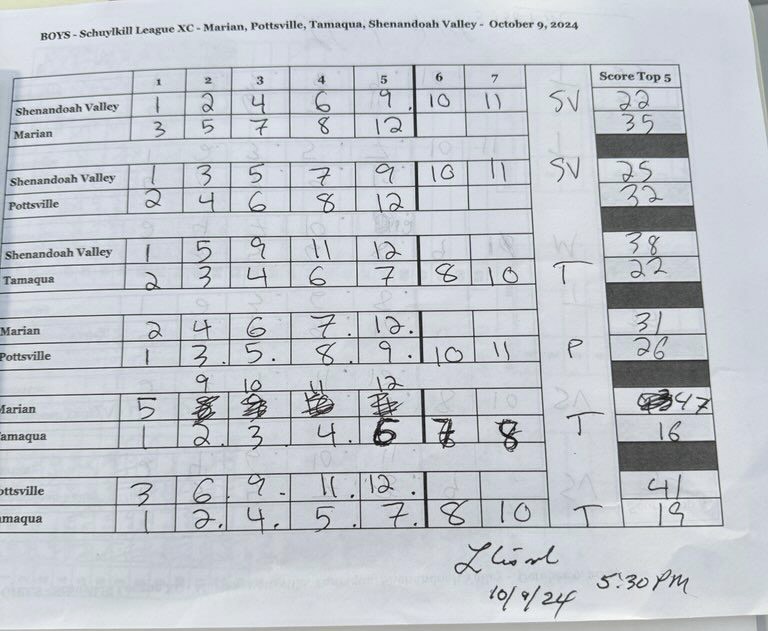 BOYS - Schuylkill League XC - Marian, Pottsville, Tamaqua, Shenandoah Valley - October 9, 2024
1 2 3 4 5 6 7 Score Top 5
Shenandoah Valley 1 2 4 6 9. 10 11 SV 22
Marian 3 5 7 8 12 35
Shenandoah Valley 1 3 5 7 9 10 11 SV 25
Pottsville 2 4 6 8 12 32
Shenandoah Valley 1 5 9 11 12 38
Tamaqua 2 3 4 6 7 8 10 T 22
Marian 2 4 6 7. 12. 31
Pottsville 1 3. 5. 8. 9. 10 11 P 26
9 10 11 12
Marian 5 47
amaqua 1 2. 3. 4. 6 7 8 T 16
ottsville 3 6 9. 11. 12. 41
maqua 1 2. 4. 5. 7. 8 10 T 19
10/9/24 5:30 PM